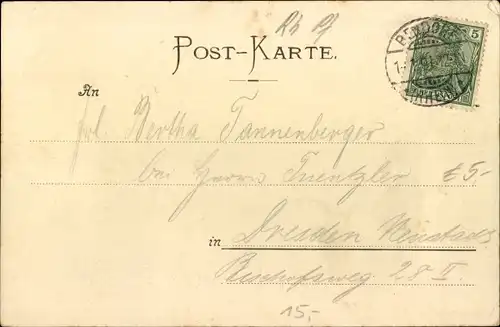 Rh Pf
POST-KARTE.
5
BENDORF
An
frl. Bertha Tannenberger
bei Herrn Fuentzler
£5-
in Dresden Neustadt
Bischofsweg 28 II
15.-